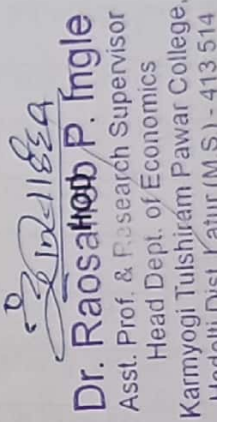 Dr. Raosaheb P. Ingle
HOD
Asst. Prof. & Research Supervisor
Head Dept. of Economics
Karmyogi Tulshiram Pawar College,
Hadolti Dist. Latur (M.S) - 413 514